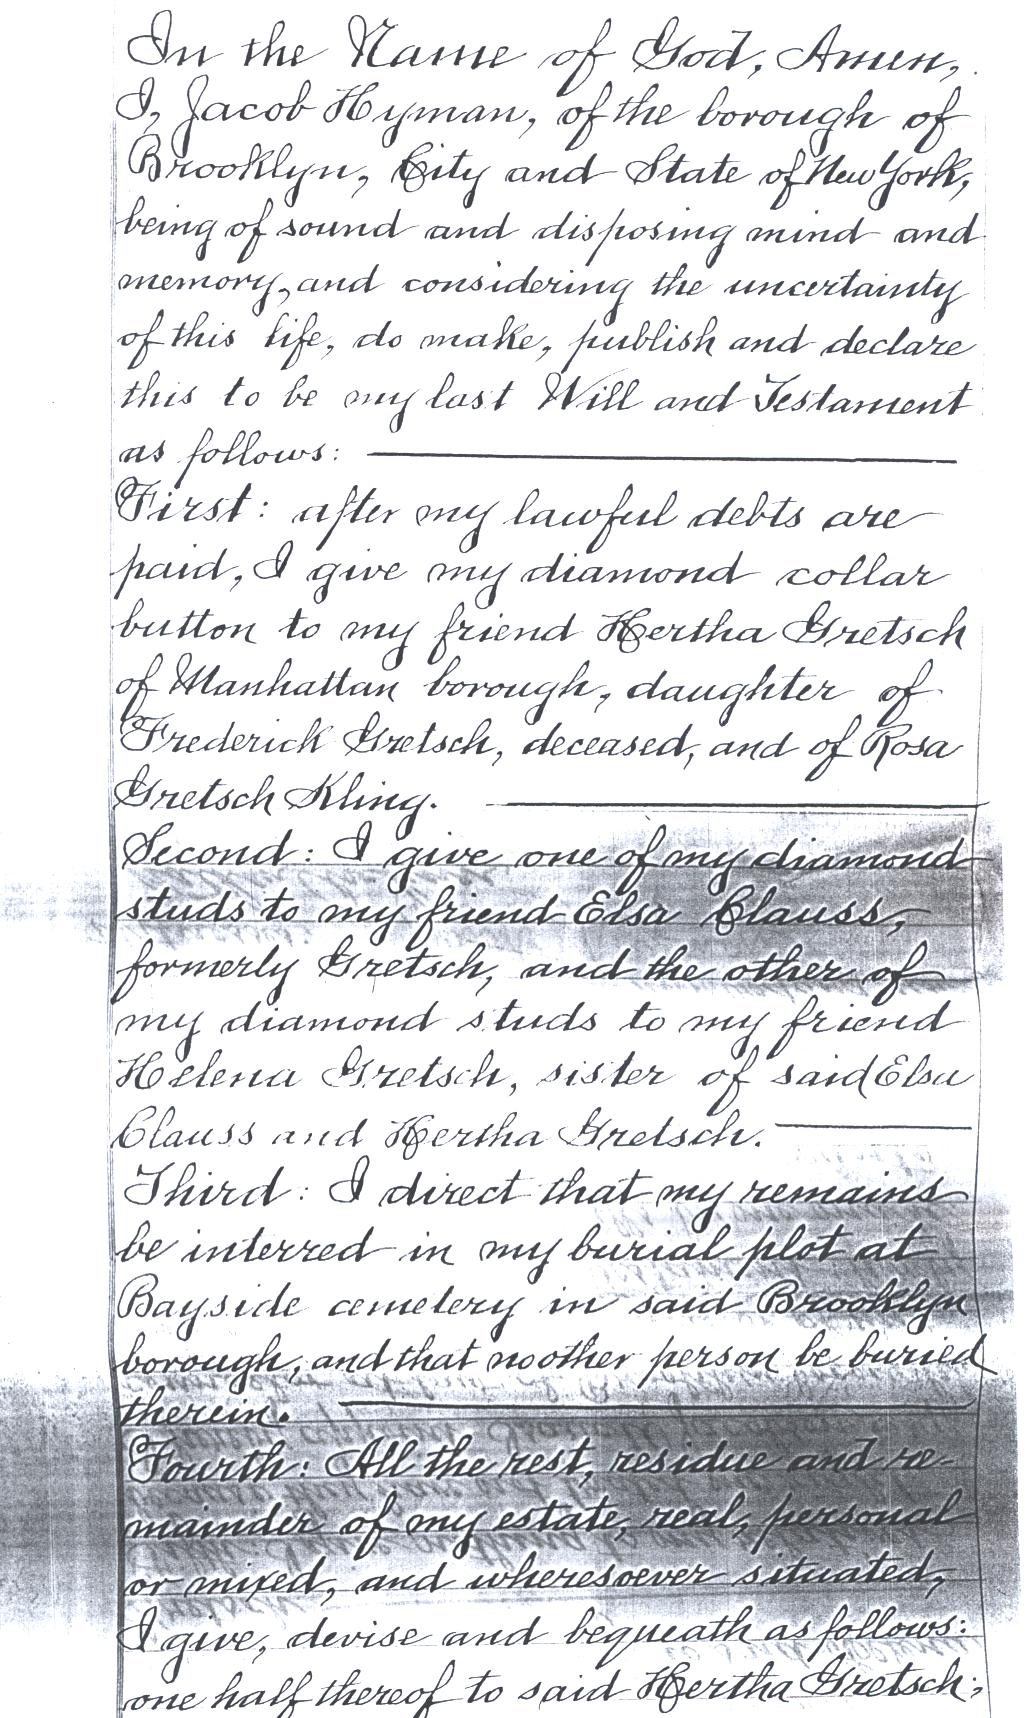 In the Name of God, Amen,
I, Jacob Hyman, of the borough of
Brooklyn, City and State of New York,
being of sound and disposing mind and
memory, and considering the uncertainty
of this life, do make, publish and declare
this to be my last Will and Testament
as follows:
First: after my lawful debts are
paid, I give my diamond collar
button to my friend Hertha Gretsch
of Manhattan borough, daughter of
Frederick Gretsch, deceased, and of Rosa
Gretsch Kling.
Second: I give one of my diamond
studs to my friend Elsa Clauss,
formerly Gretsch, and the other of
my diamond studs to my friend
Helena Gretsch, sister of said Elsa
Clauss and Hertha Gretsch.
Third: I direct that my remains
be interred in my burial plot at
Bayside cemetery in said Brooklyn
borough, and that no other person be buried
therein.
Fourth: All the rest, residue and re-
mainder of my estate, real, personal
or mixed, and wheresoever situated,
I give, devise and bequeath as follows:
one half thereof to said Hertha Gretsch;